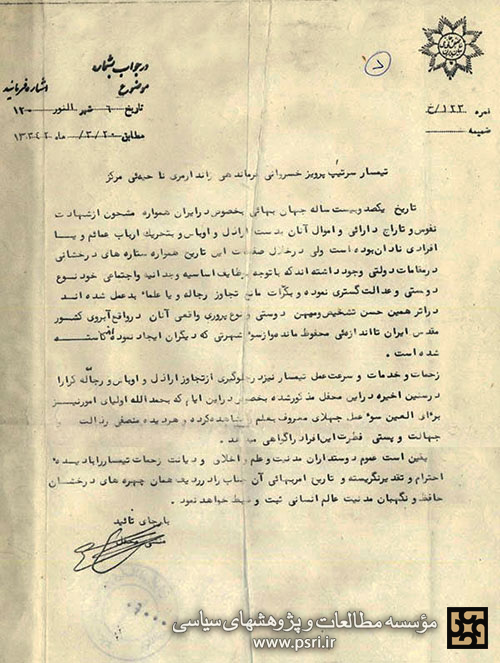 در جواب بشماره
موضوع
اشاره فرمائید
تاریخ ٦ شهر النور ۱۲۰
مطابق ۲۰/۳/ ماه ۱۳۴۲
نمره ۱۲۲/خ
ضمیمه
تیمسار سرتیپ پرویز خسروانی فرماندهی ژاندارمری ناحیه‌ئی مرکز
تاریخ یکصد و بیست ساله جهان بهائی بخصوص در ایران همواره مشحون از شهادت
نفوس و تاراج دارائی و اموال آنان بدست اراذل و اوباش و بتحریک ارباب عمائم و یا
افرادی نادان بوده است ولی در خلال صفحات این تاریخ همواره ستاره های درخشانی
در مقامات دولتی وجود داشته اند که با توجه بوظایف اساسیه وجدانیه و اجتماعی خود نوع
دوستی و عدالت گستری نموده و بکرات مانع تجاوز رجاله و یا علماء بدعمل شده اند
در اثر همین حسن تشخیص و میهن دوستی و نوع پروری واقعی آنان در واقع آبروی کشور
مقدس ایران تا اندازه‌ئی محفوظ مانده و از سوء شهرتی که دیگران ایجاد نموده کاسته
شده است .
زحمات و خدمات و سرعت عمل تیمسار نیز در جلوگیری از تجاوز اراذل و اوباش و رجاله کرارا
در سنین اخیره در این محفل مذکور شده بخصوص در این ایام که بحمدالله اولیای امور نیز
برأی العین سوء عمل جهلای معروف بعلم را مشاهده کرده و هر دیده منصفی رذالت و
جهالت و پستی فطرت این افراد را گواهی میدهد .
یقین است عموم دوستداران مدنیت و علم و اخلاق و دیانت زحمات تیمسار را با دیده
احترام و تقدیر نگریسته و تاریخ امر بهائی آن جناب را در ردیف همان چهره های درخشان
حافظ و نگهبان مدنیت عالم انسانی ثبت و ضبط خواهد نمود .
با رجای تائید
مؤسسه مطالعات و پژوهشهای سیاسی
www.psri.ir